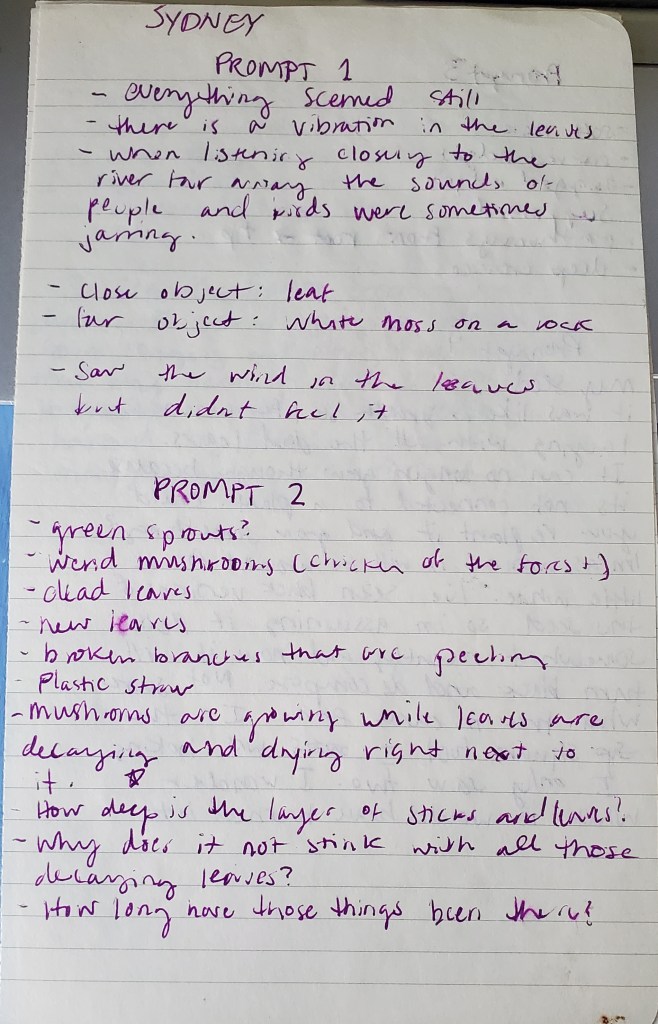 SYDNEY
PROMPT 1
- everything seemed still
- there is a vibration in the leaves
- when listening closely to the
river far away the sounds of
people and birds were sometimes
jarring.
- close object: leaf
- far object: white moss on a rock
- Saw the wind in the leaves
but didnt feel it
PROMPT 2
- green sprouts?
- weird mushrooms (chicken of the forest)
- dead leaves
- new leaves
- broken branches that are peeling
- Plastic straw
- mushrooms are growing while leaves are
decaying and drying right next to
it.
- How deep is the layer of sticks and leaves?
- Why does it not stink with all those
decaying leaves?
- How long have those things been there?